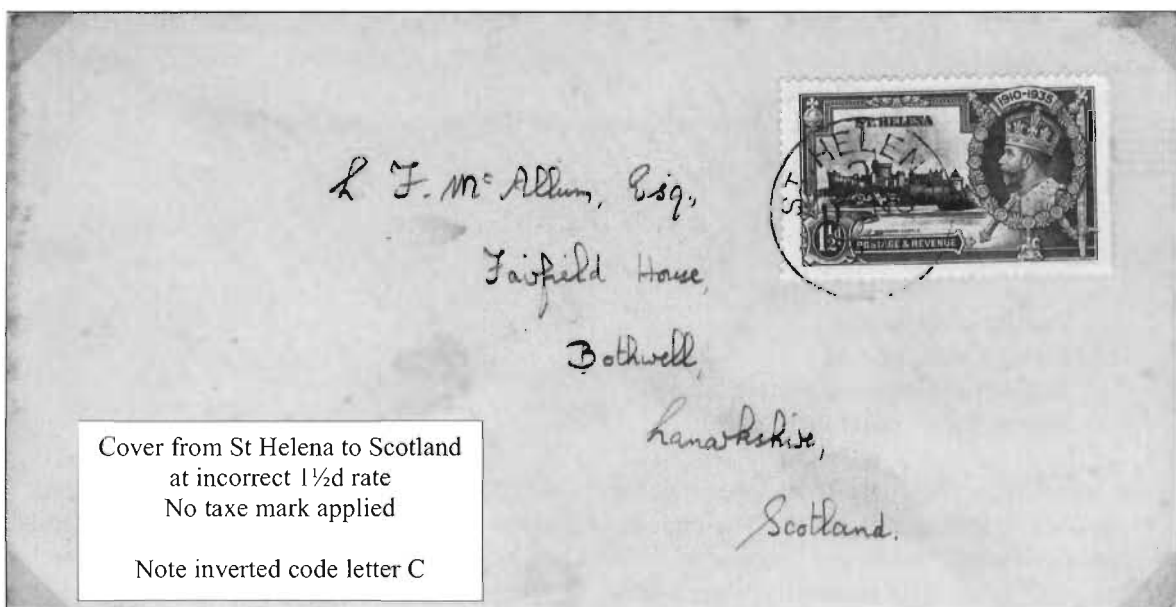 1910-1935
ST. HELENA
ST HELEN
C
1½d
POSTAGE & REVENUE
L F. Mc Allum, Esq.,
Fairfield House,
Bothwell,
Lanarkshire,
Scotland.
Cover from St Helena to Scotland
at incorrect 1½d rate
No taxe mark applied
Note inverted code letter C